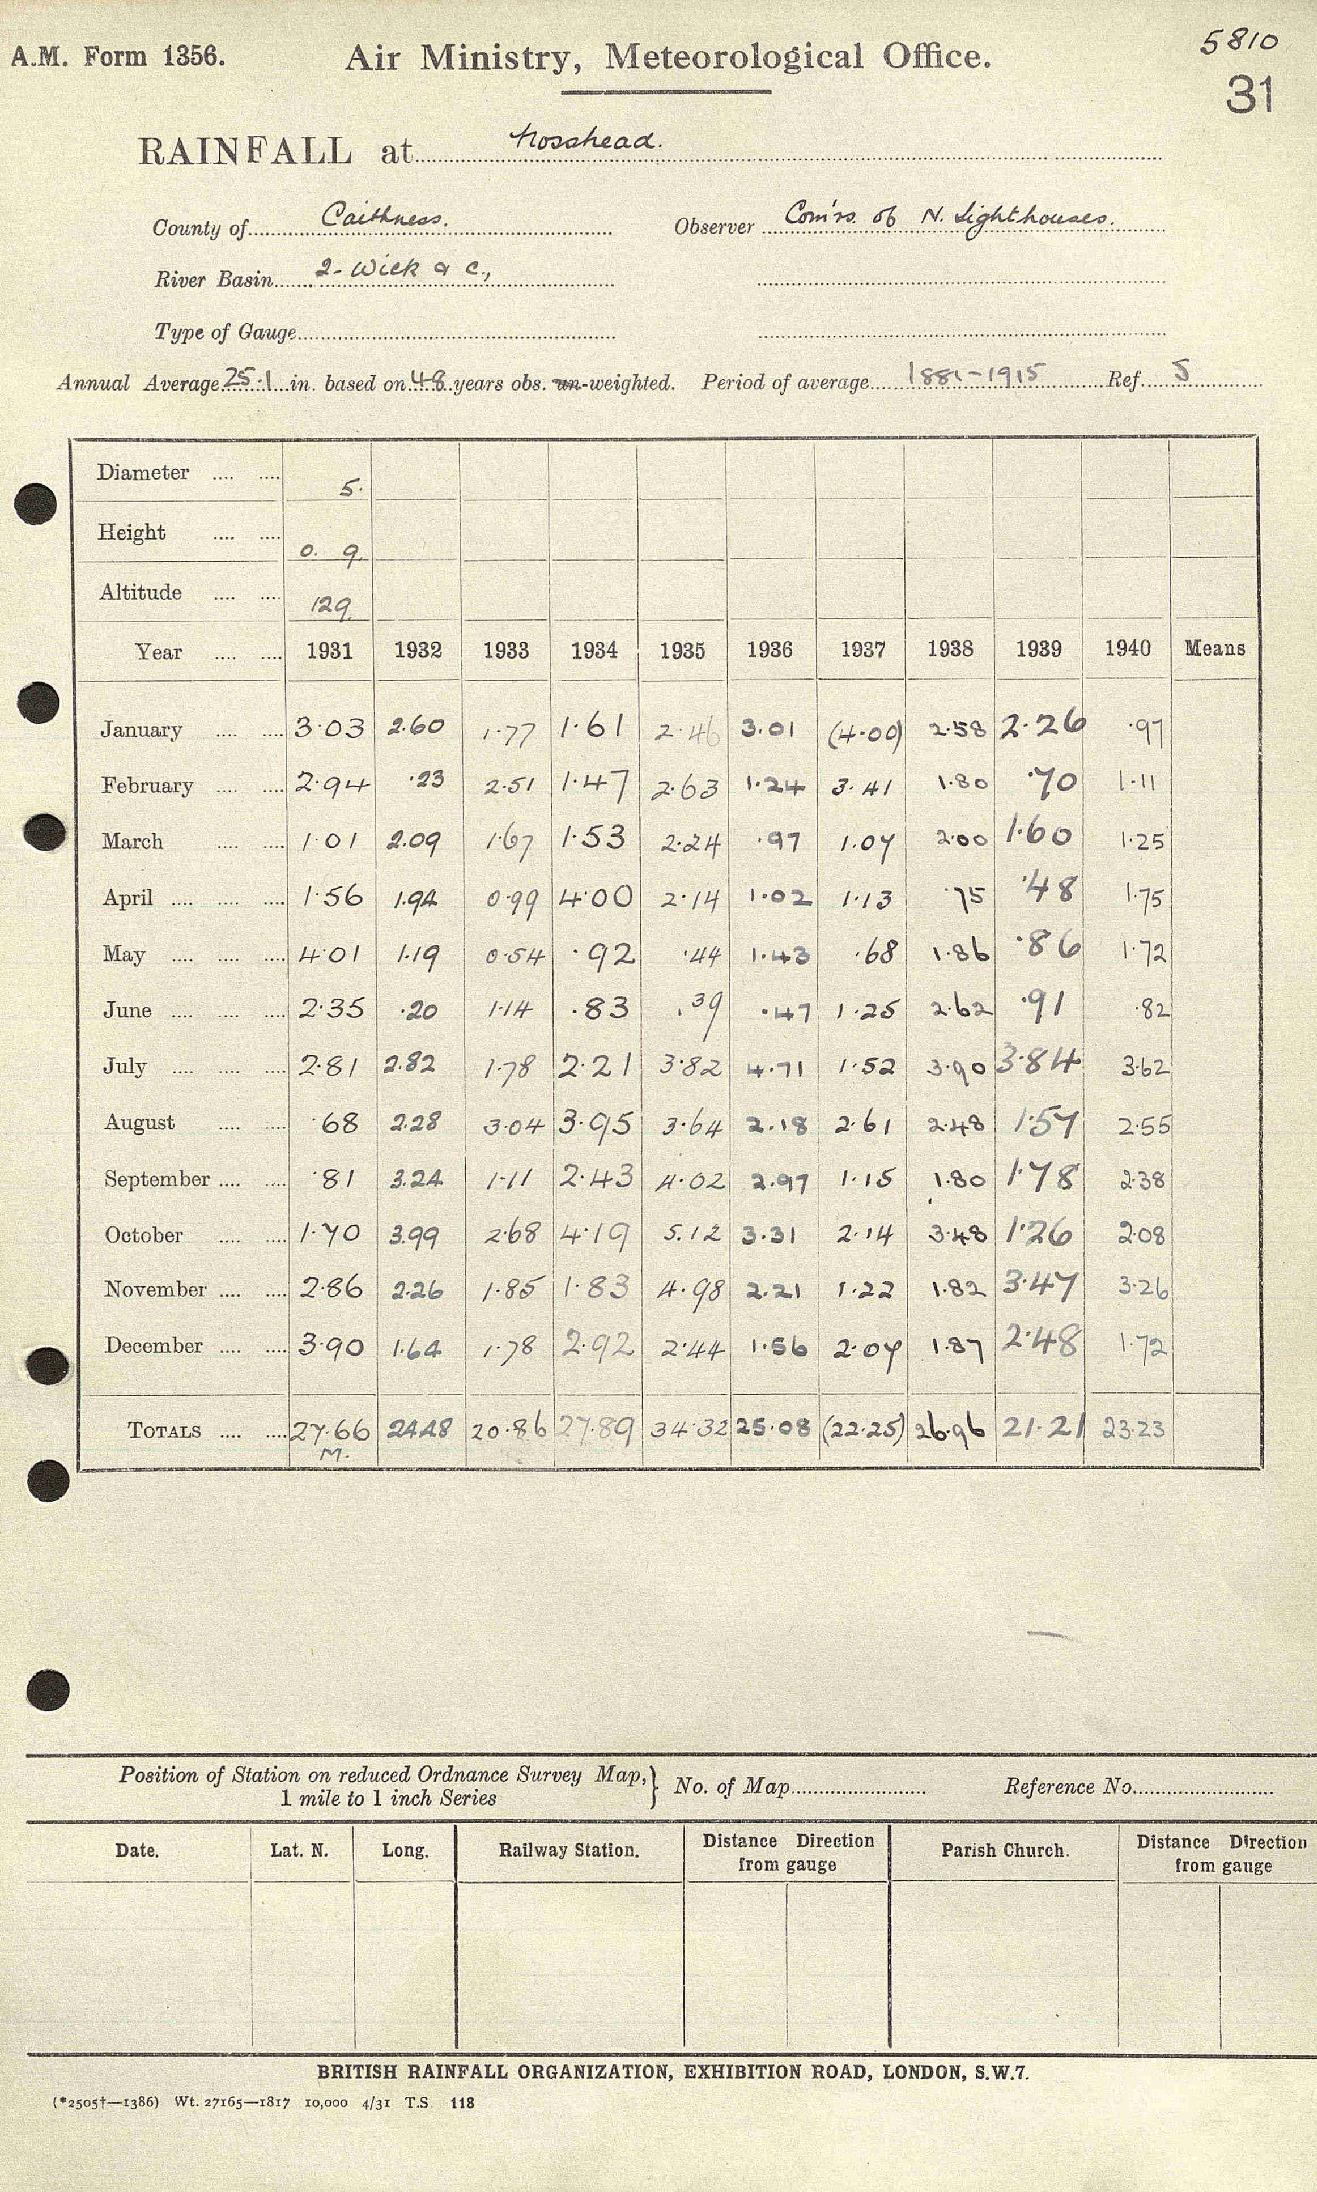 A.M. Form 1356.
Air Ministry, Meteorological Office.
5810
31
RAINFALL at Nosshead.
County of Caithness. Observer Com'rs. of N. Lighthouses.
River Basin 2- Wick & c.,
Type of Gauge
Annual Average 25.1 in. based on 48 years obs. un-weighted. Period of average 1881-1915 Ref. 5
Diameter 5.
Height 0. 9.
Altitude 129.
Year 1931 1932 1933 1934 1935 1936 1937 1938 1939 1940 Means
January 3.03 2.60 1.77 1.61 2.46 3.01 (4.00) 2.58 2.26 .97
February 2.94 .23 2.51 1.47 2.63 1.24 3.41 1.80 .70 1.11
March 1.01 2.09 1.67 1.53 2.24 .97 1.07 2.00 1.60 1.25
April 1.56 1.94 0.99 4.00 2.14 1.02 1.13 .75 .48 1.75
May 4.01 1.19 0.54 .92 .44 1.43 .68 1.86 .86 1.72
June 2.35 .20 1.14 .83 .39 .47 1.25 2.62 .91 .82
July 2.81 2.82 1.78 2.21 3.82 4.71 1.52 3.90 3.84 3.62
August .68 2.28 3.04 3.95 3.64 2.18 2.61 2.48 1.57 2.55
September .81 3.24 1.11 2.43 4.02 2.97 1.15 1.80 1.78 2.38
October 1.70 3.99 2.68 4.19 5.12 3.31 2.14 3.48 1.26 2.08
November 2.86 2.26 1.85 1.83 4.98 2.21 1.22 1.82 3.47 3.26
December 3.90 1.64 1.78 2.92 2.44 1.56 2.07 1.87 2.48 1.72
TOTALS 27.66 24.48 20.86 27.89 34.32 25.08 (22.25) 26.96 21.21 23.23
M.
Position of Station on reduced Ordnance Survey Map, } No. of Map Reference No.
1 mile to 1 inch Series
Date. Lat. N. Long. Railway Station. Distance Direction from gauge Parish Church. Distance Direction from gauge
BRITISH RAINFALL ORGANIZATION, EXHIBITION ROAD, LONDON, S.W.7.
(*2505†—1386) Wt. 27165—1817 10,000 4/31 T.S. 118